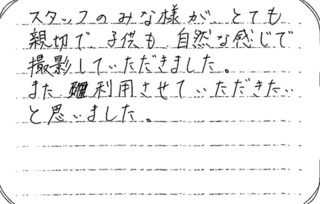 スタッフのみな様が、とても
親切で、子供も自然な感じで
撮影していただきました。
また利用させていただきたい
と思いました。